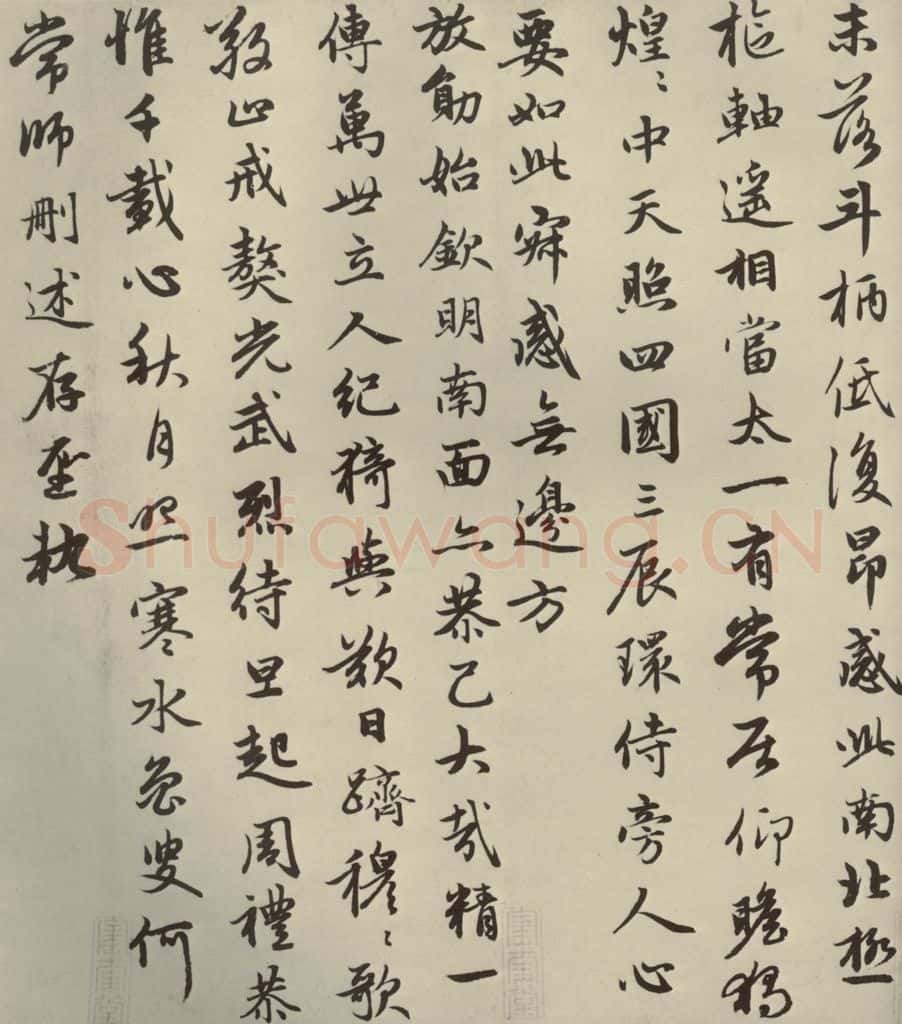 未落斗柄低復昂感此南北極
樞軸遥相當太一有常居仰瞻獨
煌〻中天照四國三辰環侍旁人心
要如此寂感無邊方
放勛始欽明南面亦恭己大哉精一
傳萬世立人紀猗與歎日躋穆〻歌
敬止戒獒光武烈待旦起周禮恭
惟千載心秋月照寒水魯叟何
常師刪述存聖軌
Shufawang.CN